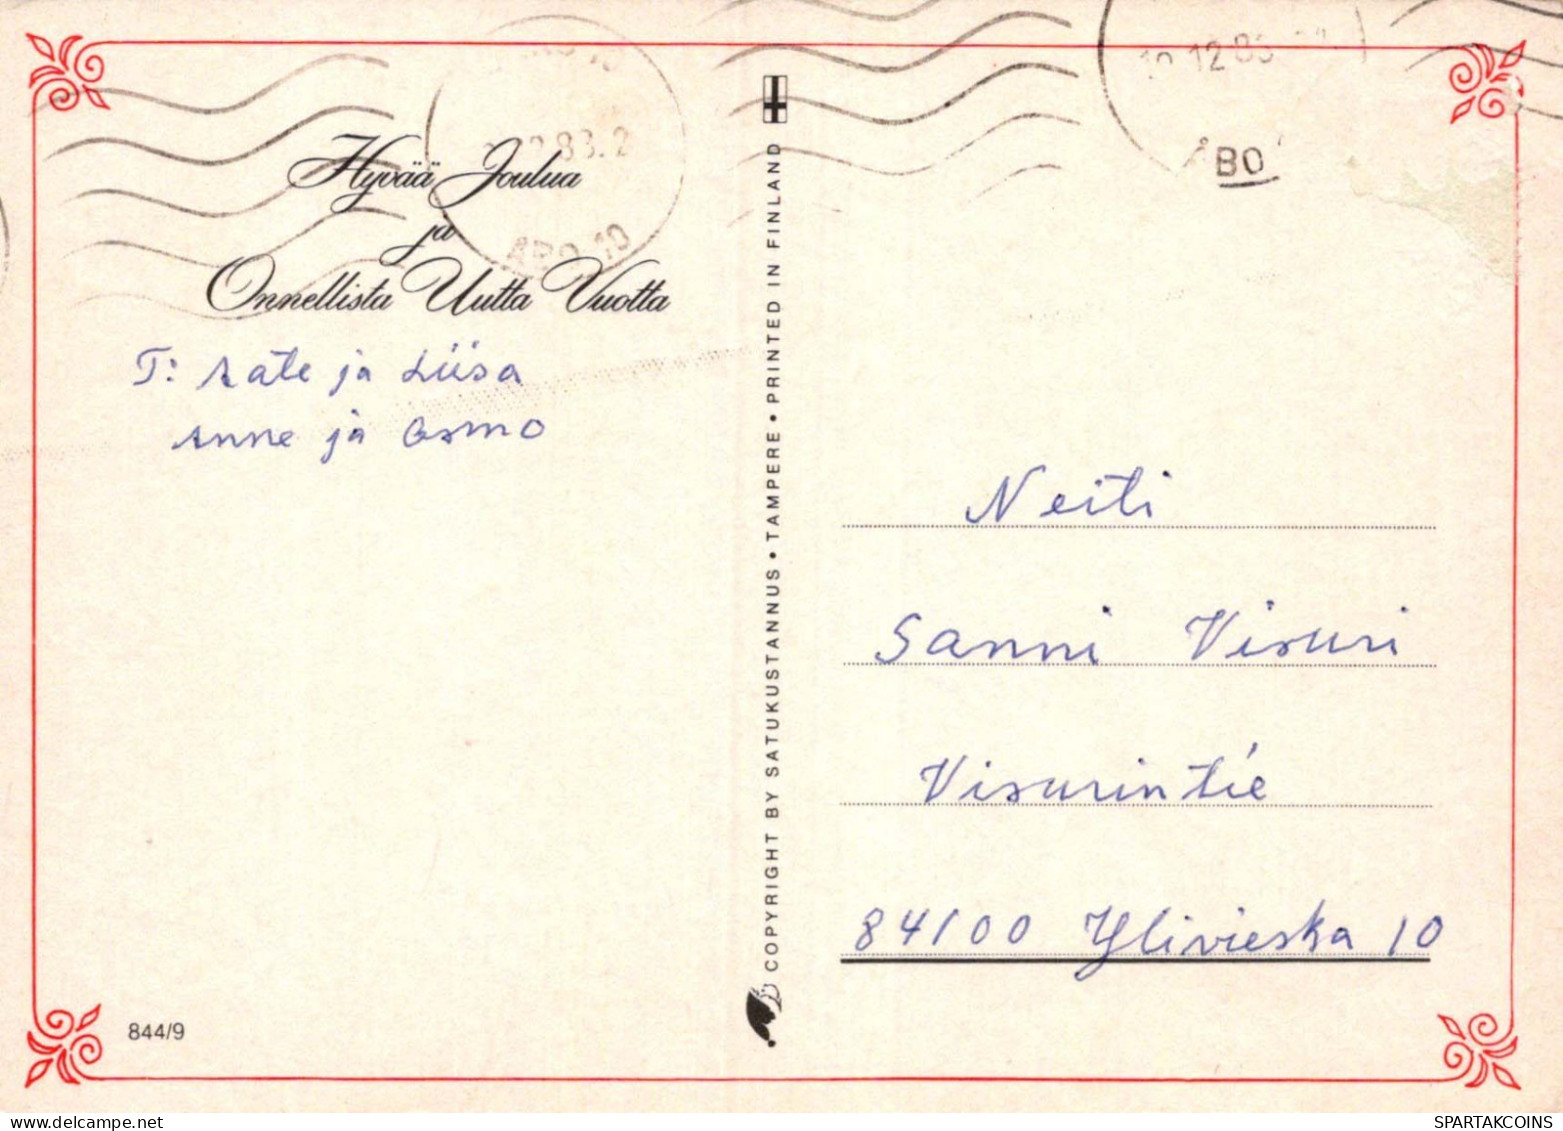 Hyvää Joulua
ja
Onnellista Uutta Vuotta
T: Aate ja Liisa
Anne ja Osmo
844/9
COPYRIGHT BY SATUKUSTANNUS • TAMPERE • PRINTED IN FINLAND
12.83
BO
Neiti
Sanni Visuri
Visurintie
84100 Ylivieska 10
delcampe.net
SPARTAKCOINS